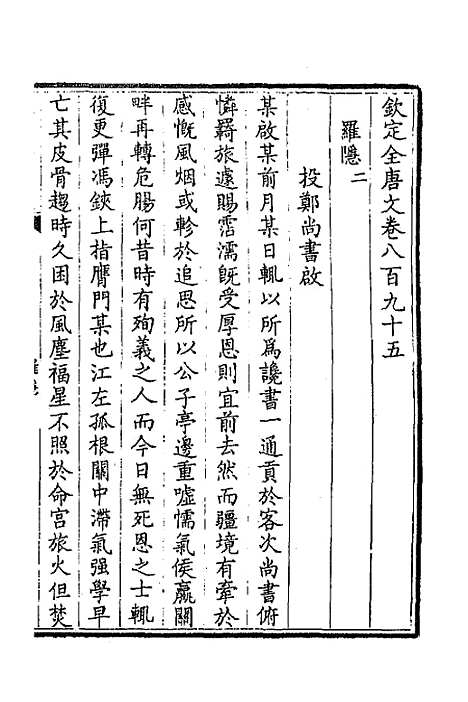 欽定全唐文卷八百九十五
羅隱二
投鄭尚書啟
某啟某前月某日輒以所爲讒書一通貢於客次尚書俯
憐羇旅遽賜霑濡旣受厚恩則宜前去然而疆境有牽於
感慨風烟或軫於追思所以公子亭邊重噓懦氣侯嬴關
畔再轉危腸何昔時有殉義之人而今日無死恩之士輒
復更彈馮鋏上指膺門某也江左孤根關中滯氣强學早
亡其皮骨趨時久困於風塵福星不照於命宮旅火但焚